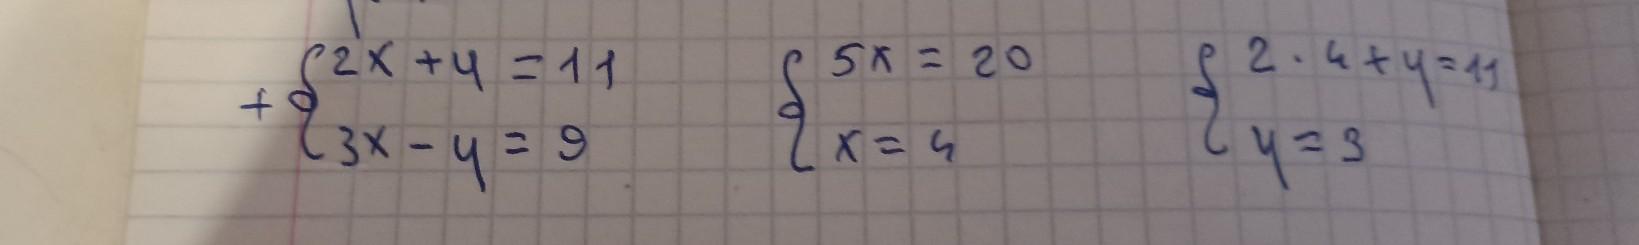 + { 2x + y = 11
3x - y = 9
{ 5x = 20
x = 4
{ 2 · 4 + y = 11
y = 3